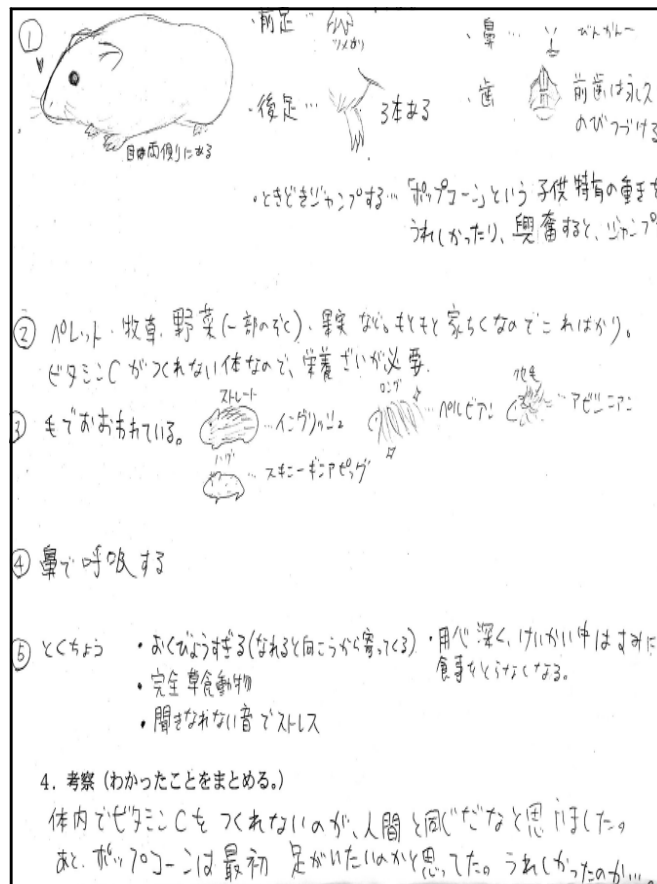 ①
・前足…
ツメあり
・鼻…
びんかん～
・後足…
3本ある
・歯
前歯は永久
のびつづける
目は両側にある
・ときどきジャンプする…「ポップコーン」という子供特有の重きを
うれしかったり、興奮すると、ジャンプ
② ペレット・牧草、野菜(一部のぞく)、果実など。もともと家ちくなのでこればかり。
ビタミンCがつくれない体なので、栄養ざいが必要.
③ 毛でおおわれている。
ストレート
…イングリッシュ
ロング
…ペルビアン
クセ毛
…アビシニアン
ハゲ
…スキニーギニアピッグ
④ 鼻で呼吸する
⑤ とくちょう
・おくびょうすぎる(なれると向こうから寄ってくる)
・用心深く、けいかい中はすみに
食事もとらなくなる。
・完全草食動物
・聞きなれない音でストレス
4. 考察（わかったことをまとめる。）
体内でビタミンCをつくれないのが、人間と同じだなと思いました。
あと、ポップコーンは最初 足がいたいのかと思ってた。うれしかったのか…。